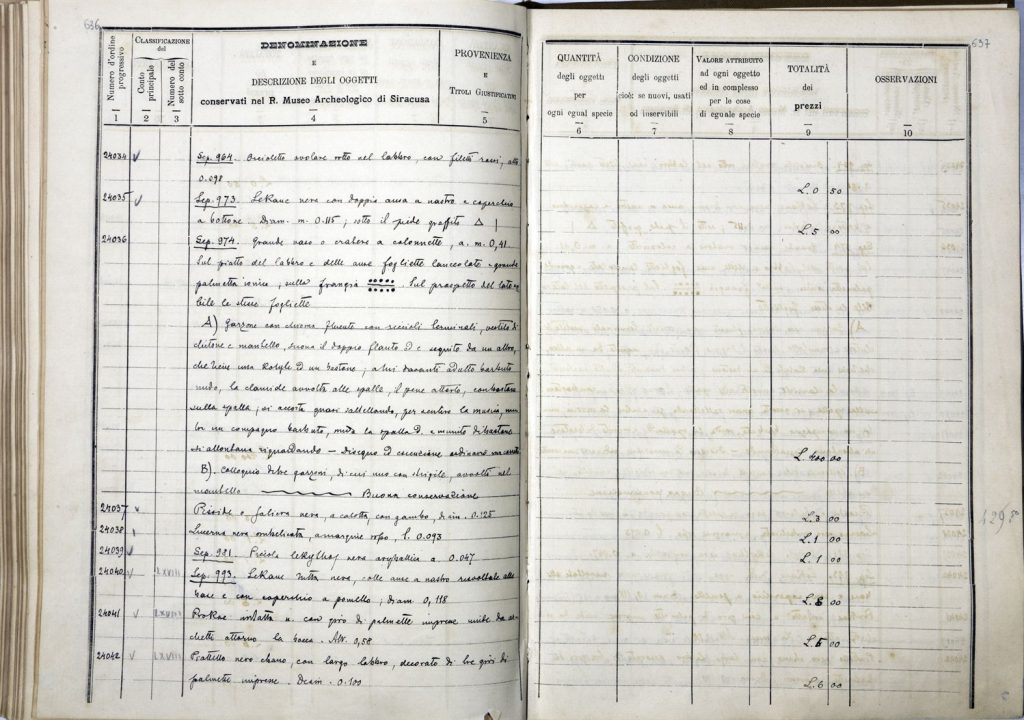 636
Numero d'ordine progressivo
Classificazione del
Conto principale
Numero del sotto conto
DENOMINAZIONE
E
DESCRIZIONE DEGLI OGGETTI
conservati nel R. Museo Archeologico di Siracusa
PROVENIENZA
E
TITOLI GIUSTIFICATIVI
1 2 3 4 5
24034 Sep. 964. Orcioletto ovolare rotto nel labbro, con filetti rossi, alto
0.098
24035 Sep. 973. Lekane nera con doppia ansa a nastro e coperchio
a bottone. Diam. m. 0.115; sotto il piede graffito Δ |
24036 Sep. 974. Grande vaso o cratere a colonnette, a. m. 0,41
Sul piatto del labbro e delle anse fogliette lanceolate e grande
palmetta ionica; sulla frangia . Sul prospetto del labro
bile le stesse fogliette
A) Garzone con chioma fluente con riccioli terminali, vestito di
chitone e mantello, suona il doppio flauto ed è seguito da un altro,
che tiene una Kotyle ed un bastone; a lui davanti adulto barbuto
nudo, la clamide avvolta alle spalle, il pene attorto, con bastone
sulla spalla; si accosta quasi saltellando, per sentire la musica, men
tre un compagno barbuto, nuda la spalla D. e munito di bastone
si allontana riguardando — Disegno ed esecuzione ordinari
B). Colloquio di tre garzoni, di cui uno con strigile, avvolti nel
mantello Buona conservazione
24037 Pisside o saliera nera, a calotta, con gambo, diam. 0.125
24038 Lucerna nera ombelicata, a margine roso, l. 0.093
24039 Sep. 981. Piccola lekythos nera aryballica a. 0.047
24040 LXVIII Sep. 993. Lekane tutta nera, colle anse a nastro risvoltate alla
base e con coperchio a pomello; diam. 0,118
24041 LXVIII intatta n. con giro di palmette impresse unite da ar
chetti attorno la bocca. Alt. 0,58
24042 LXVIII Piattello nero chiaro, con largo labbro, decorato di tre giri di
palmette impresse. Diam. 0.100
637
QUANTITÀ
degli oggetti
per
ogni egual specie
CONDIZIONE
degli oggetti
cioè: se nuovi, usati
od inservibili
VALORE ATTRIBUITO
ad ogni oggetto
ed in complesso
per le cose
di eguale specie
TOTALITÀ
dei
prezzi
OSSERVAZIONI
6 7 8 9 10
L. 0 50
L. 5 00
L. 400 00
L. 3 00
L. 1 00
L. 1 00
L. 8 00
L. 5 00
L. 6 00